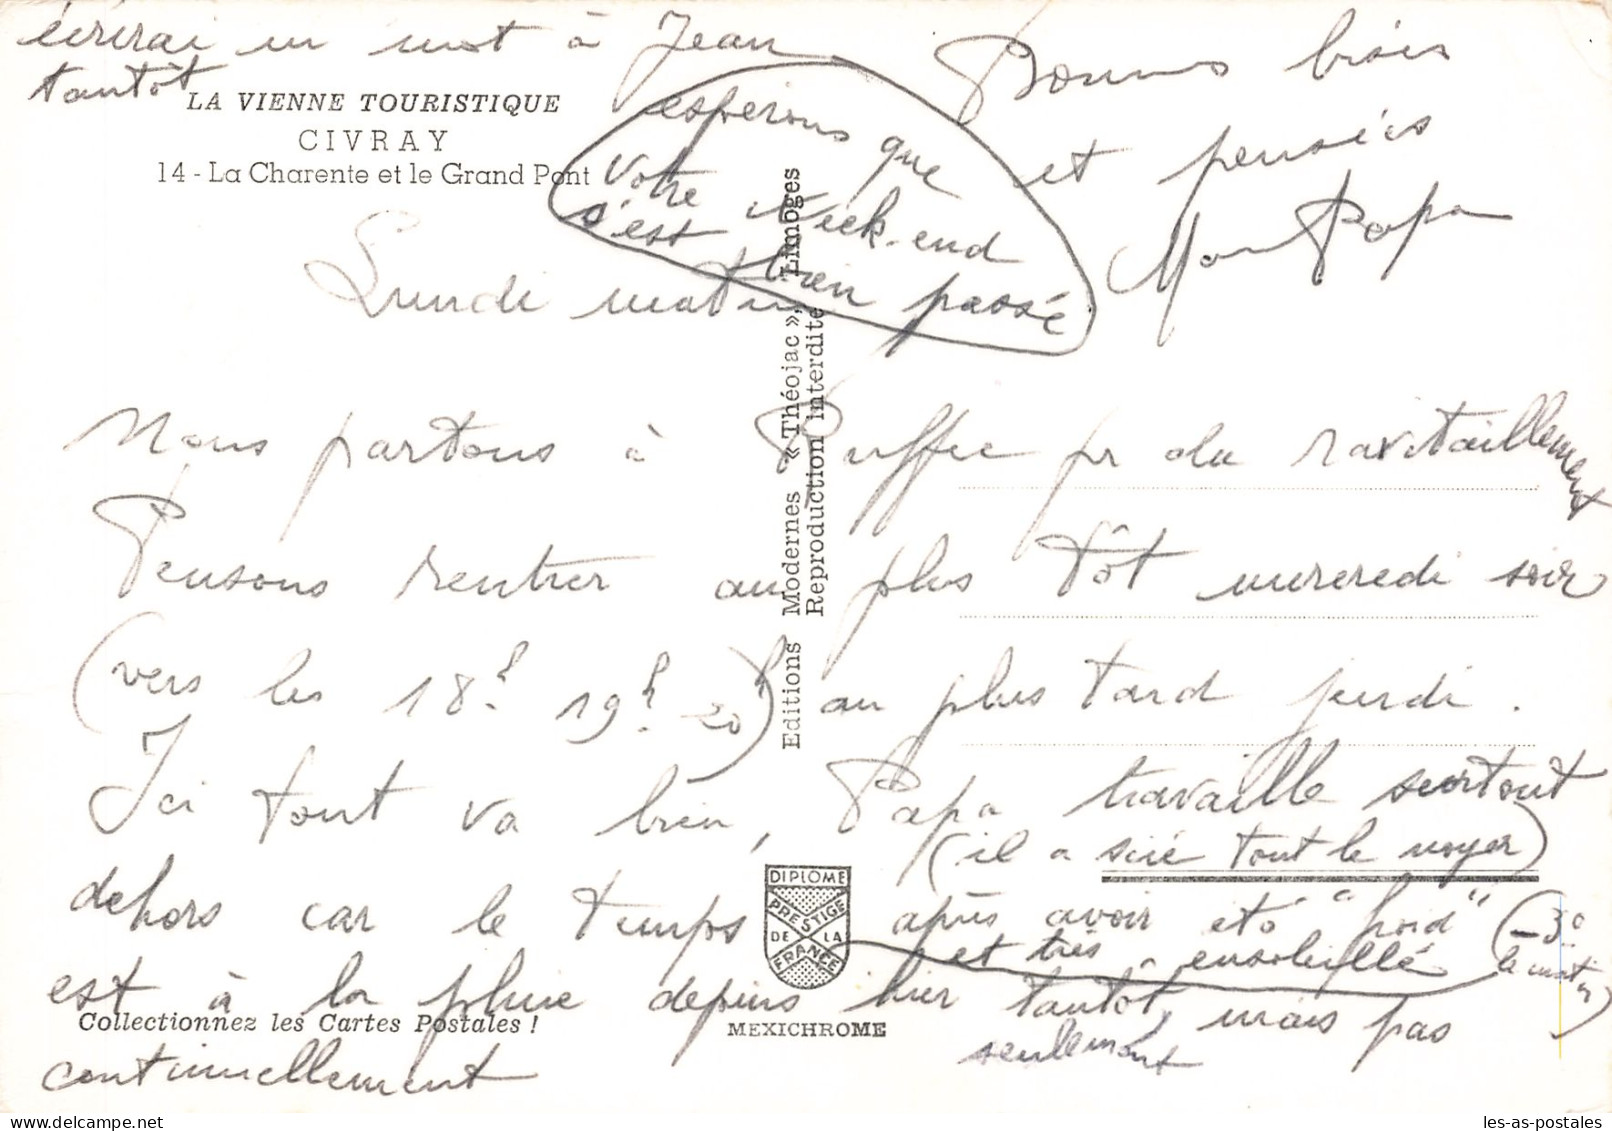 écrirai un mot à Jean
tantôt
LA VIENNE TOURISTIQUE
CIVRAY
14 - La Charente et le Grand Pont
esperons que
votre Week-end
s'est bien passé
Bonnes bises
et pensées
Papa
Lundi matin
Nous partons à Ruffec pr du ravitaillement
Pensons rentrer au plus tôt mercredi soir
(vers les 18h. 19h. 20h) au plus tard jeudi.
Ici tout va bien, Papa travaille surtout
(il a scié tout le noyer)
dehors car le temps après avoir été "froid" (-3°
le matin)
et très ensoleillé
est à la pluie depuis hier tantôt, mais pas
seulement
continuellement
Editions Modernes « Théojac », Limoges
Reproduction interdite
DIPLÔME
PRESTIGE
DE LA
FRANCE
Collectionnez les Cartes Postales !
MEXICHROME
les-as-postales